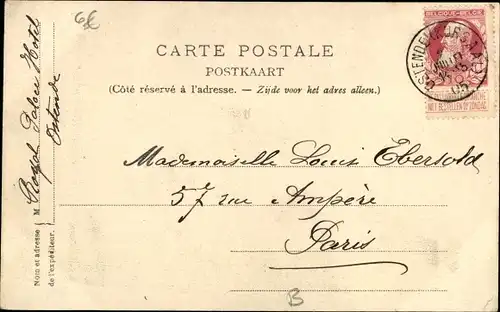 6€
BELGIQUE-BELGIË
OSTENDE
CARTE POSTALE
POSTKAART
(Côté réservé à l'adresse. — Zijde voor het adres alleen.)
NIET BESTELLEN OP ZONDAG
Mademoiselle Louis Ebersold
57 rue Ampère
Paris
Nom et adresse M. Royal Palace Hotel
de l'expéditeur. Ostende
B